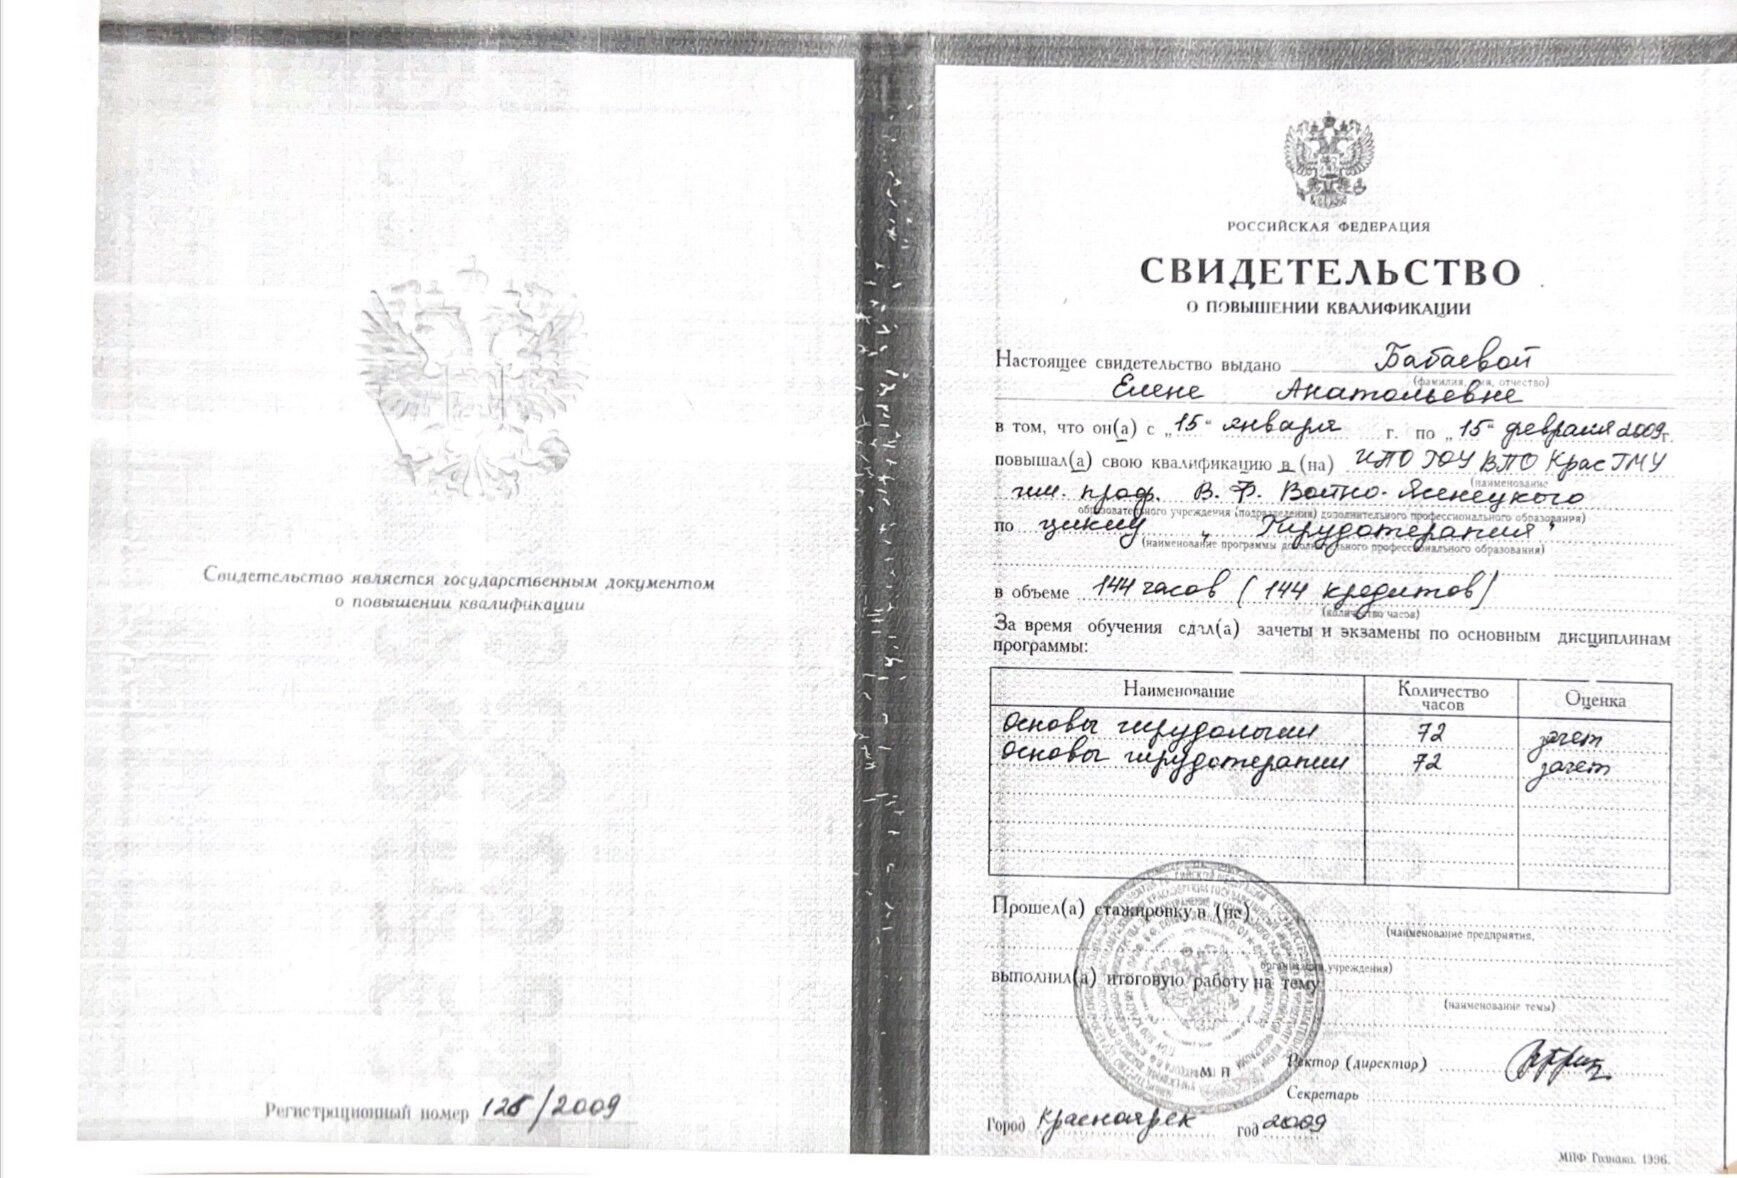 Свидетельство является государственным документом
о повышении квалификации
Регистрационный номер 125/2009
РОССИЙСКАЯ ФЕДЕРАЦИЯ
СВИДЕТЕЛЬСТВО
О ПОВЫШЕНИИ КВАЛИФИКАЦИИ
Настоящее свидетельство выдано Бабаевой
(фамилия, имя, отчество)
Елене Анатольевне
в том, что он(а) с „15“ января г. по „15“ февраля 2009 г.
повышал(а) свою квалификацию в (на) ИПО ГОУ ВПО КрасГМУ
(наименование
им. проф. В. Ф. Войно-Ясенецкого
образовательного учреждения (подразделения) дополнительного профессионального образования)
по циклу „Гирудотерапия“
(наименование программы дополнительного профессионального образования)
в объеме 144 часов (144 кредитов)
(количество часов)
За время обучения сдал(а) зачеты и экзамены по основным дисциплинам
программы:
Наименование Количество часов Оценка
Основы гирудологии 72 зачет
Основы гирудотерапии 72 зачет
Прошел(а) стажировку в (на)
(наименование предприятия,
организации, учреждения)
выполнил(а) итоговую работу на тему
(наименование темы)
Ректор (директор)
М П
Секретарь
Город Красноярск год 2009
МПФ Гознака. 1996.